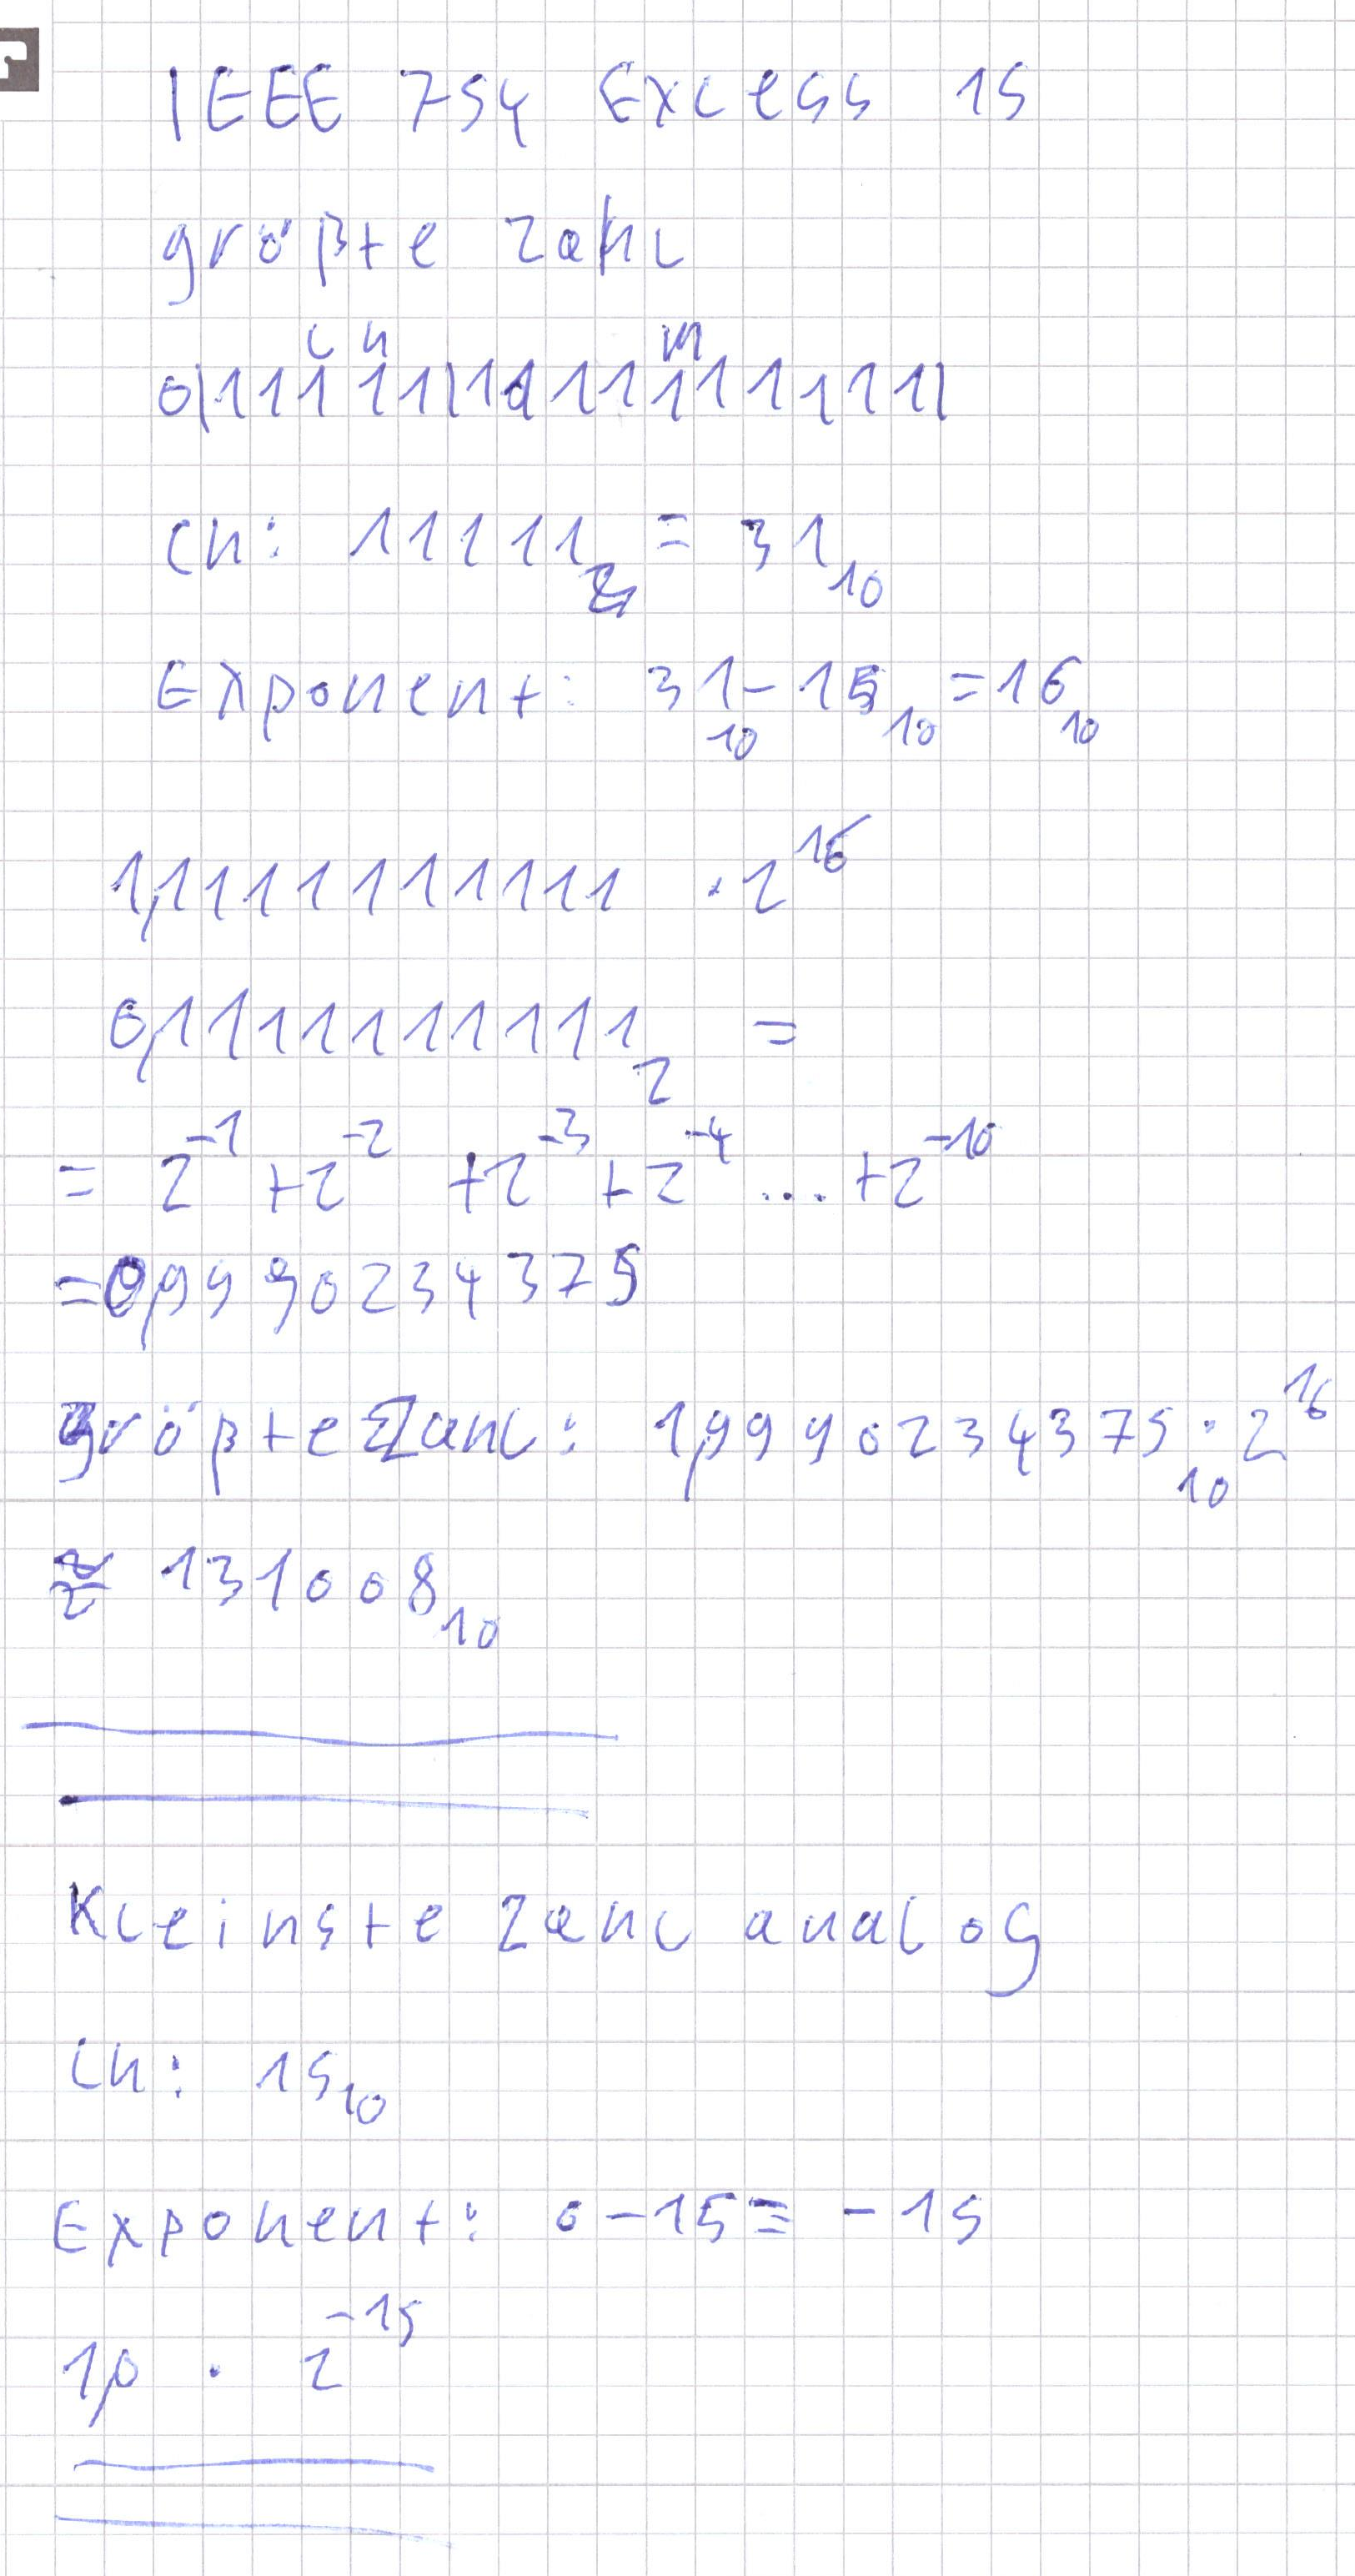 IEEE 754 Excess 15
größte Zahl
ch m
0|11111|1111111111|
ch: 11111₂ = 31₁₀
Exponent: 31₁₀ - 15₁₀ = 16₁₀
1,1111111111 · 2¹⁶
0,1111111111₂ =
= 2⁻¹ + 2⁻² + 2⁻³ + 2⁻⁴ ... + 2⁻¹⁰
= 0,9990234375
größte Zahl: 1,9990234375₁₀ · 2¹⁶
≈ 131008₁₀
Kleinste Zahl analog
ch: 15₁₀
Exponent: 0 - 15 = -15
1,0 · 2⁻¹⁵